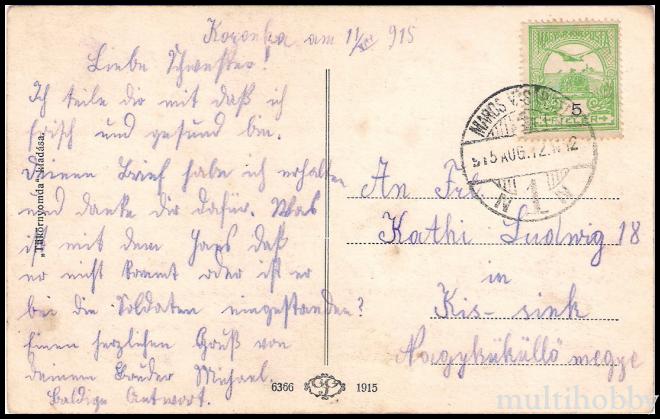 Koronka am 11/VIII 915
Liebe Schwester!
Ich teile dir mit daß ich
frisch und gesund bin.
Deinen Brief habe ich erhalten
und danke dir dafür. Was
ist mit dem Hans daß
er nicht kommt oder ist er
bei die Soldaten eingestanden?
Einen herzlichen Gruß von
deinem Bruder Michael.
Baldige Antwort.
„Tükörnyomda“ kiadása.
MAGYAR KIR. POSTA
5
FILLER
MAROS V
915 AUG. 12. N 12
N 1 N
An Frl.
Kathi Ludwig 18
in
Kis-sink
Nagyküküllő megye
6366
1915
multihobby